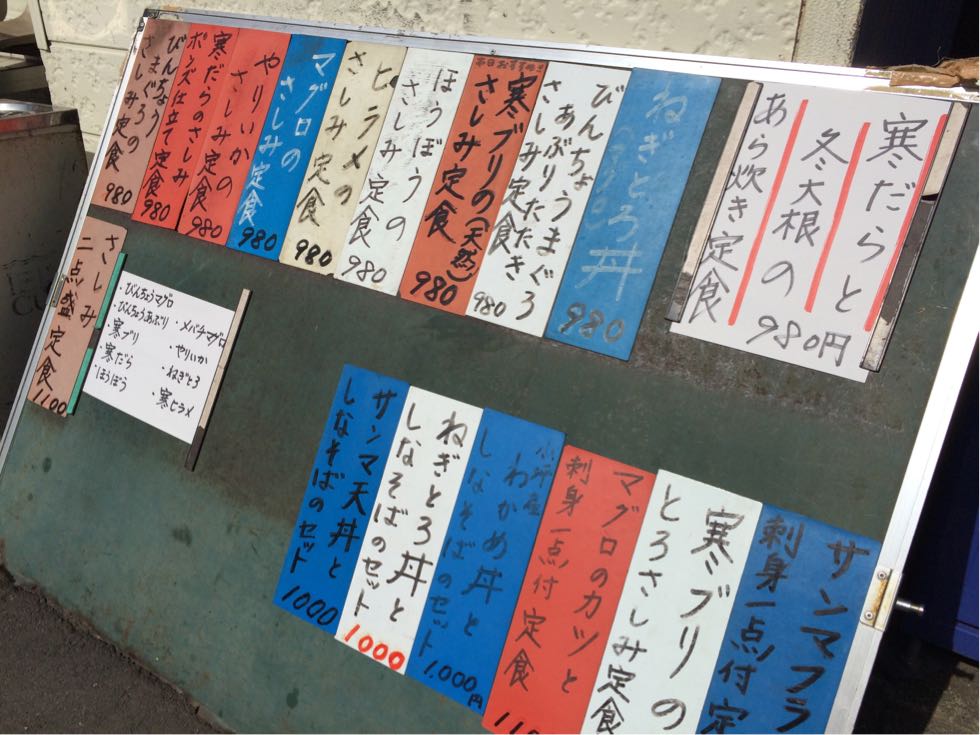 寒だらと
冬大根の
あら炊き定食
980円
ねぎとろ丼
980
びんちょうまぐろ
あぶり
さしみたたき
定食
980
本日おすすめ
寒ブリの(天然)
さしみ定食
980
ほうぼうの
さしみ定食
980
ヒラメの
さしみ定食
980
マグロの
さしみ定食
980
やりいか
さしみ定食
980
寒だらのさしみ
ポンズ仕立て定食
980
びんちょう
まぐろの
さしみ定食
980
さしみ
二点盛定食
1100
・びんちょうマグロ
・びんちょうあぶり
・寒ブリ
・寒だら
・ほうぼう
・メバチマグロ
・やりいか
・ねぎとろ
・寒ヒラメ
サンマフラ
刺身一点付定
寒ブリの
とろさしみ定食
マグロのカツと
刺身一点付定食
110
わかめ丼と
しなそばのセット
1,000円
ねぎとろ丼と
しなそばのセット
1000
サンマ天丼と
しなそばのセット
1000